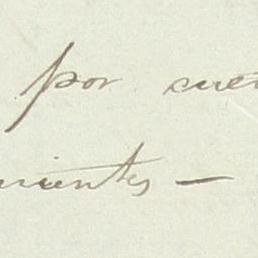 por cue
nientes —